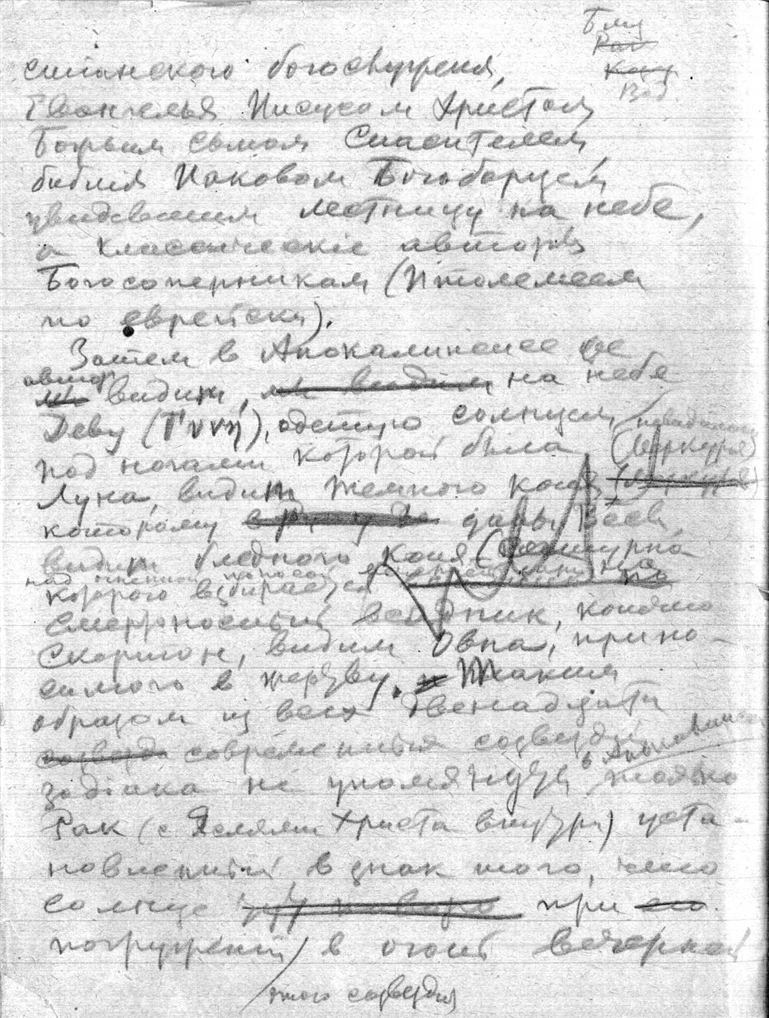 Близ
Рак
Вод
стианского богослужения,
Евангелья Иисусом Христом
Божьим сыном Спасителем,
библия Иаковом Богоборцем,
увидевшим лестницу на небе,
а классические авторы
Богосоперникам (Птолемеем
по еврейски).
Затем в Апокалипсисе
автор
видит, на небе
Деву (Γυνή), одетую солнцем,
под ногами которой была (Меркурия)
Луна, видит темного коня,
которому даны Весы,
видит бледного коня
над
которого взбирается
смертоносный всадник,
Скорпион, видим Овна, прино-
симого в жертву. Таким
образом из всех двенадцати
созвезд современных созвездий
в Апокалипсисе
зодиака не упомянут только
Рак (с Яслями Христа внутри) уста-
новленный в знак того, что
солнце при его
погружении в огонь вечерней
этого созвездия